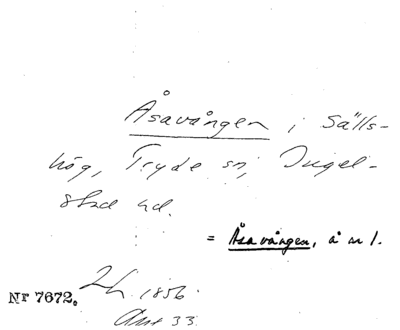 Åsavången i Sälls-
hög, Tryde sn, Ingel-
stad hd.
= Åsavången, å nr 1.
Nr 7672. Lh. 1856.
Akt 33.